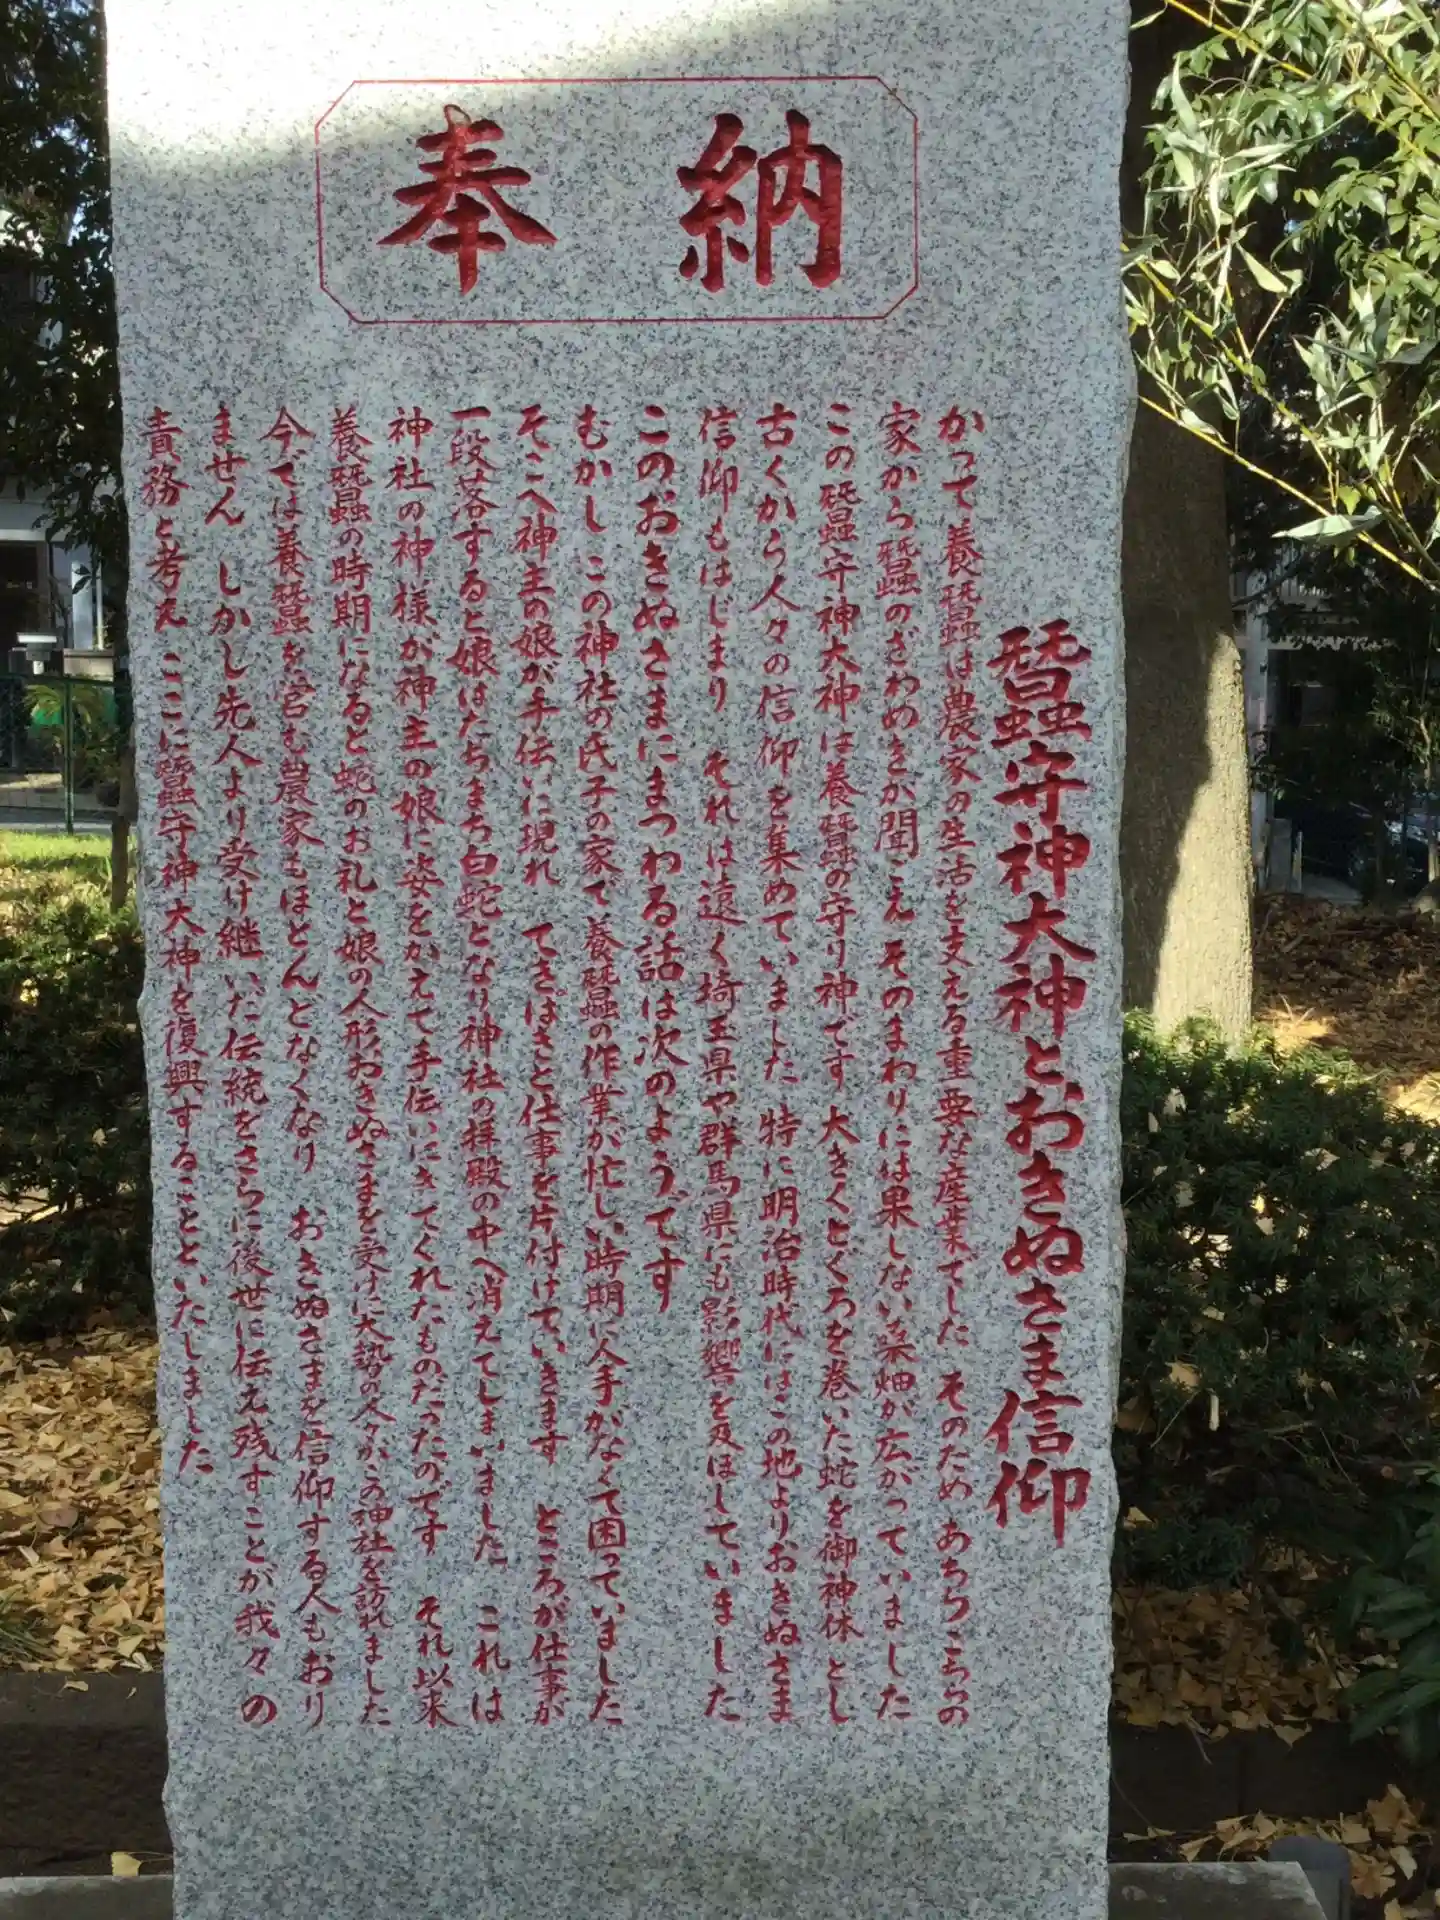 奉納
蠶守神大神とおきぬさま信仰
かつて養蠶は農家の生活を支える重要な産業でした そのため あちらこちらの
家から蠶のざわめきが聞こえ そのまわりには果しない桑畑が広がっていました
この蠶守神大神は養蠶の守り神です 大きくとぐろを巻いた蛇を御神体とし
古くから人々の信仰を集めていました 特に明治時代にはこの地よりおきぬさま
信仰もはじまり それは遠く埼玉県や群馬県にも影響を及ぼしていました
このおきぬさまにまつわる話は次のようです
むかし この神社の氏子の家で養蠶の作業が忙しい時期に人手がなくて困っていました
そこへ神主の娘が手伝いに現れ てきぱきと仕事を片付けていきます ところが仕事が
一段落すると娘はたちまち白蛇となり神社の拝殿の中へ消えてしまいました これは
神社の神様が神主の娘に姿をかえて手伝いにきてくれたものだったのです それ以来
養蠶の時期になると蛇のお礼と娘の人形おきぬさまを受けに大勢の人々がこの神社を訪れました
今では養蠶を営む農家もほとんどなくなり おきぬさまを信仰する人もおり
ません しかし先人より受け継いだ伝統をさらに後世に伝え残すことが我々の
責務と考え ここに蠶守神大神を復興することといたしました